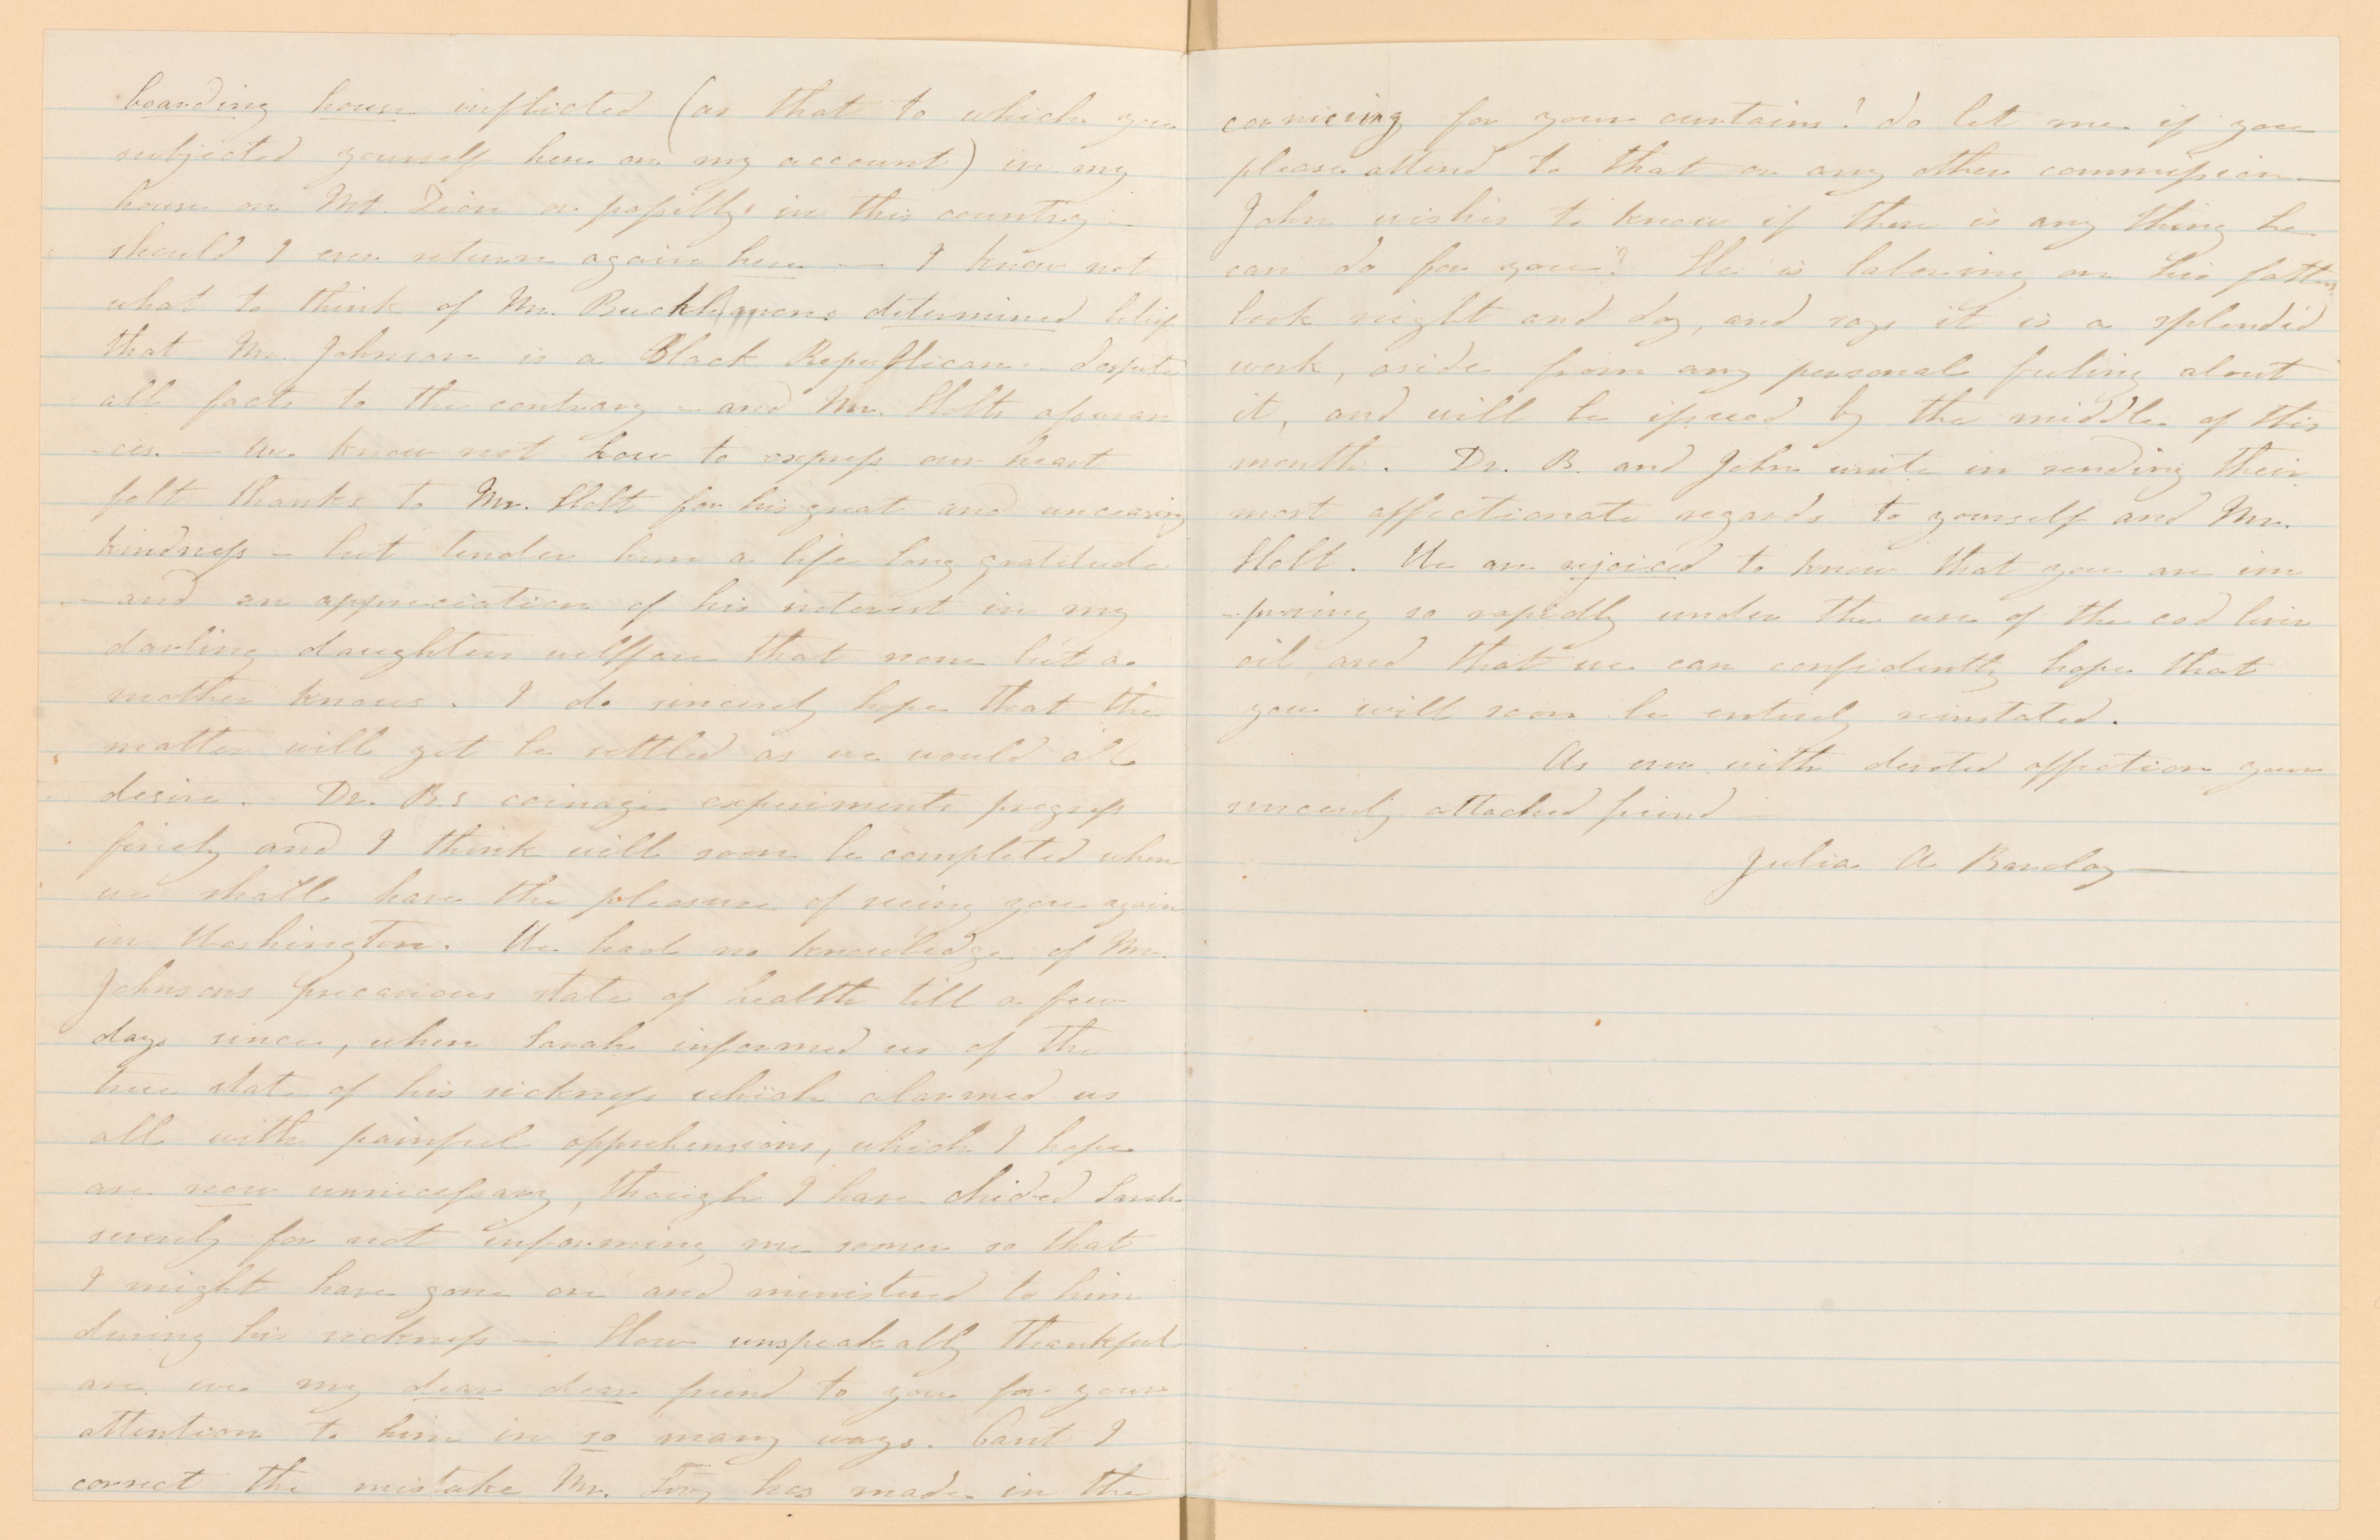 boarding house inflicted (as that to which you
subjected yourself here on my account) in my
house on Mt. Zion or possibly in this country —
should I ever return again here — I know not
what to think of Mr. Buckhannons determined belief
that Mr. Johnson is a Black Republican - despite
all facts to the contrary - and Mr. Holts assuran
-ces. — We know not how to express our heart
felt thanks to Mr. Holt for his great and unceasing
kindness - but tender him a life long gratitude
- and an appreciation of his interest in my
darling daughters wellfare that none but a
mother knows. I do sincerely hope that the
matter will yet be settled as we would all
desire. Dr. B.s coinage experiments progress
finely and I think will soon be completed when
we shall have the pleasure of seeing you again
in Washington. We had no knowledge of Mr.
Johnsons precarious state of health till a few
days since, when Sarah informed us of the
true state of his sickness which alarmed us
all with painful apprehensions, which I hope
are now unnecessary, though I have chided Sarah
severely for not informing me sooner so that
I might have gone on and ministered to him
during his sickness — How unspeakably thankful
are we my dear dear friend to you for your
attention to him in so many ways. Cant I
correct the mistake Mr. has made in the
cornicing for your curtains? do let me if you
please attend to that or any other commission —
John wishes to know if there is any thing he
can do for you? He is laboring on his fathers
book night and day, and says it is a splendid
work, aside from any personal feeling about
it, and will be issued by the middle of this
month. Dr. B. and John unite in sending their
most affectionate regards to yourself and Mr.
Holt. We are rejoiced to know that you are im
-proving so rapidly under the use of the cod liver
oil and that we can confidently hope that
you will soon be entirely reinstated.
As ever with devoted affection your
sincerely attached friend —
Julia A Barclay —